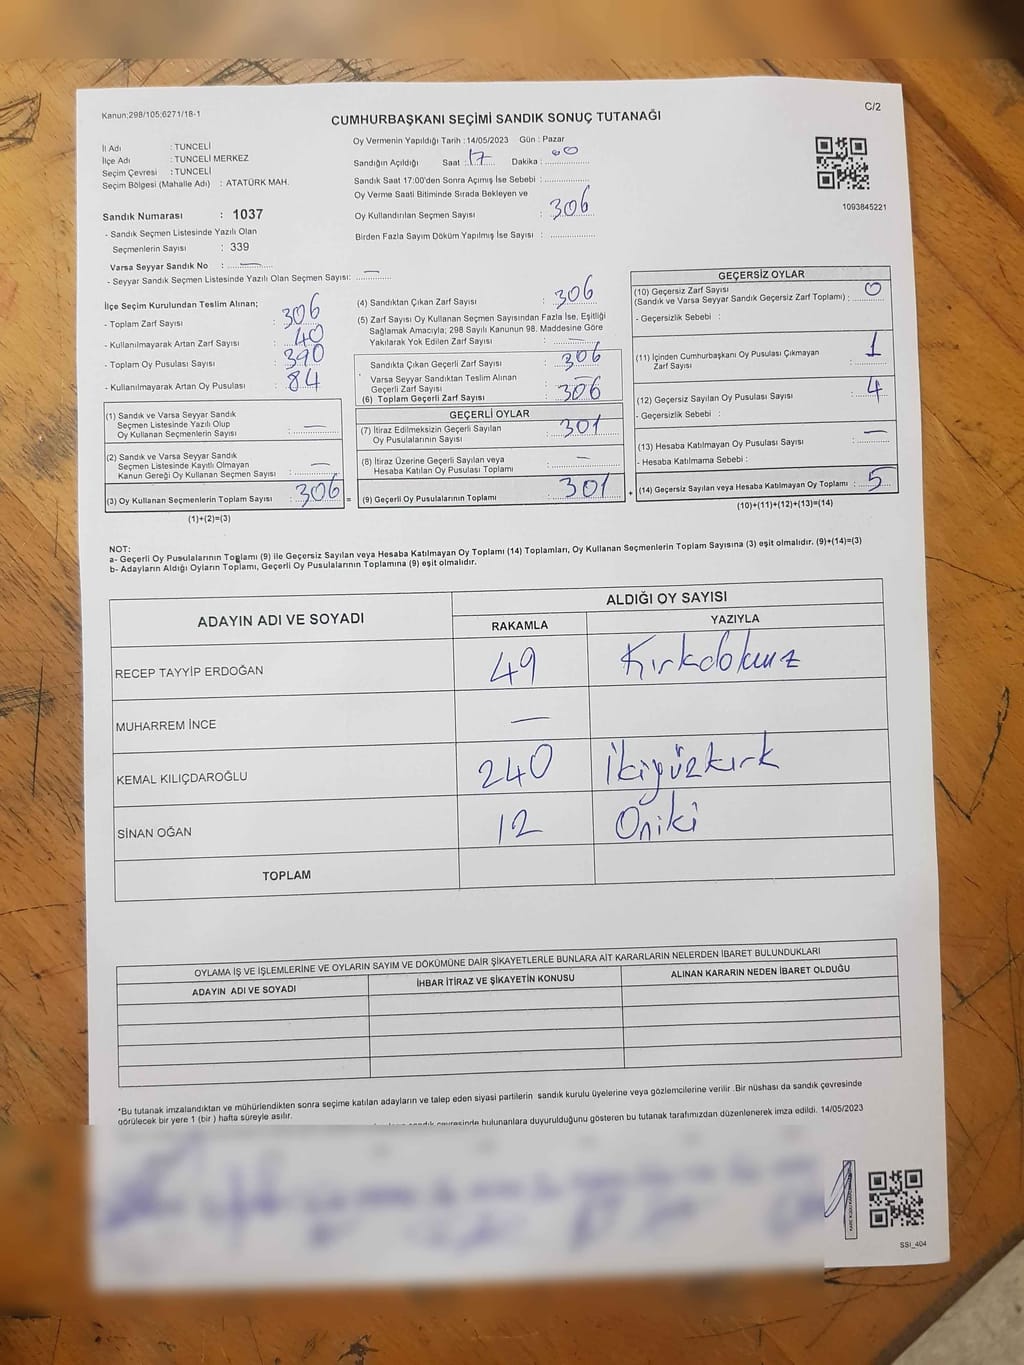 Kanun;298/105;6271/18-1
C/2
CUMHURBAŞKANI SEÇİMİ SANDIK SONUÇ TUTANAĞI
İl Adı : TUNCELİ
İlçe Adı : TUNCELİ MERKEZ
Seçim Çevresi : TUNCELİ
Seçim Bölgesi (Mahalle Adı) : ATATÜRK MAH.
Sandık Numarası : 1037
- Sandık Seçmen Listesinde Yazılı Olan
Seçmenlerin Sayısı : 339
Varsa Seyyar Sandık No : —
- Seyyar Sandık Seçmen Listesinde Yazılı Olan Seçmen Sayısı: —
Oy Vermenin Yapıldığı Tarih :14/05/2023 Gün : Pazar
Sandığın Açıldığı Saat : 17 Dakika : 00
Sandık Saat 17:00'den Sonra Açımış İse Sebebi :
Oy Verme Saati Bitiminde Sırada Bekleyen ve
Oy Kullandırılan Seçmen Sayısı : 306
Birden Fazla Sayım Döküm Yapılmış İse Sayısı :
1093845221
İlçe Seçim Kurulundan Teslim Alınan;
- Toplam Zarf Sayısı : 306
- Kullanılmayarak Artan Zarf Sayısı : 40
- Toplam Oy Pusulası Sayısı : 390
- Kullanılmayarak Artan Oy Pusulası : 84
(1) Sandık ve Varsa Seyyar Sandık
Seçmen Listesinde Yazılı Olup
Oy Kullanan Seçmenlerin Sayısı : —
(2) Sandık ve Varsa Seyyar Sandık
Seçmen Listesinde Kayıtlı Olmayan
Kanun Gereği Oy Kullanan Seçmen Sayısı : —
(3) Oy Kullanan Seçmenlerin Toplam Sayısı : 306 =
(1)+(2)=(3)
(4) Sandıktan Çıkan Zarf Sayısı : 306
(5) Zarf Sayısı Oy Kullanan Seçmen Sayısından Fazla İse, Eşitliği
Sağlamak Amacıyla; 298 Sayılı Kanunun 98. Maddesine Göre
Yakılarak Yok Edilen Zarf Sayısı : —
Sandıkta Çıkan Geçerli Zarf Sayısı : 306
Varsa Seyyar Sandıktan Teslim Alınan
Geçerli Zarf Sayısı : —
(6) Toplam Geçerli Zarf Sayısı : 306
GEÇERLİ OYLAR
(7) İtiraz Edilmeksizin Geçerli Sayılan
Oy Pusulalarının Sayısı : 301
(8) İtiraz Üzerine Geçerli Sayılan veya
Hesaba Katılan Oy Pusulası Toplamı : —
(9) Geçerli Oy Pusulalarının Toplamı : 301 +
GEÇERSİZ OYLAR
(10) Geçersiz Zarf Sayısı
(Sandık ve Varsa Seyyar Sandık Geçersiz Zarf Toplamı) : 0
- Geçersizlik Sebebi :
(11) İçinden Cumhurbaşkanı Oy Pusulası Çıkmayan
Zarf Sayısı : 1
(12) Geçersiz Sayılan Oy Pusulası Sayısı : 4
- Geçersizlik Sebebi :
(13) Hesaba Katılmayan Oy Pusulası Sayısı : —
- Hesaba Katılmama Sebebi :
(14) Geçersiz Sayılan veya Hesaba Katılmayan Oy Toplamı : 5
(10)+(11)+(12)+(13)=(14)
NOT:
a- Geçerli Oy Pusulalarının Toplamı (9) ile Geçersiz Sayılan veya Hesaba Katılmayan Oy Toplamı (14) Toplamları, Oy Kullanan Seçmenlerin Toplam Sayısına (3) eşit olmalıdır. (9)+(14)=(3)
b- Adayların Aldığı Oyların Toplamı, Geçerli Oy Pusulalarının Toplamına (9) eşit olmalıdır.
ADAYIN ADI VE SOYADI
ALDIĞI OY SAYISI
RAKAMLA YAZIYLA
RECEP TAYYİP ERDOĞAN 49 Kırkdokuz
MUHARREM İNCE —
KEMAL KILIÇDAROĞLU 240 İkiyüzkırk
SİNAN OĞAN 12 Oniki
TOPLAM
OYLAMA İŞ VE İŞLEMLERİNE VE OYLARIN SAYIM VE DÖKÜMÜNE DAİR ŞİKAYETLERLE BUNLARA AİT KARARLARIN NELERDEN İBARET BULUNDUKLARI
ADAYIN ADI VE SOYADI İHBAR İTİRAZ VE ŞİKAYETİN KONUSU ALINAN KARARIN NEDEN İBARET OLDUĞU
*Bu tutanak imzalandıktan ve mühürlendikten sonra seçime katılan adayların ve talep eden siyasi partilerin sandık kurulu üyelerine veya gözlemcilerine verilir .Bir nüshası da sandık çevresinde
görülecek bir yere 1 (bir ) hafta süreyle asılır.
sandık çevresinde bulunanlara duyurulduğunu gösteren bu tutanak tarafımızdan düzenlenerek imza edildi. 14/05/2023
SSI_404